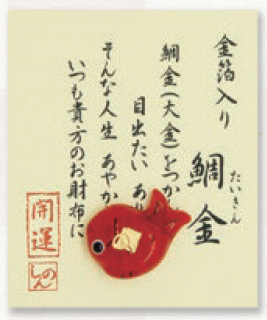 金箔入り
鯛金
たいきん
鯛金(大金)をつか
目出たい あり
そんな人生 あやか
いつも貴方のお財布に
開運
しんの